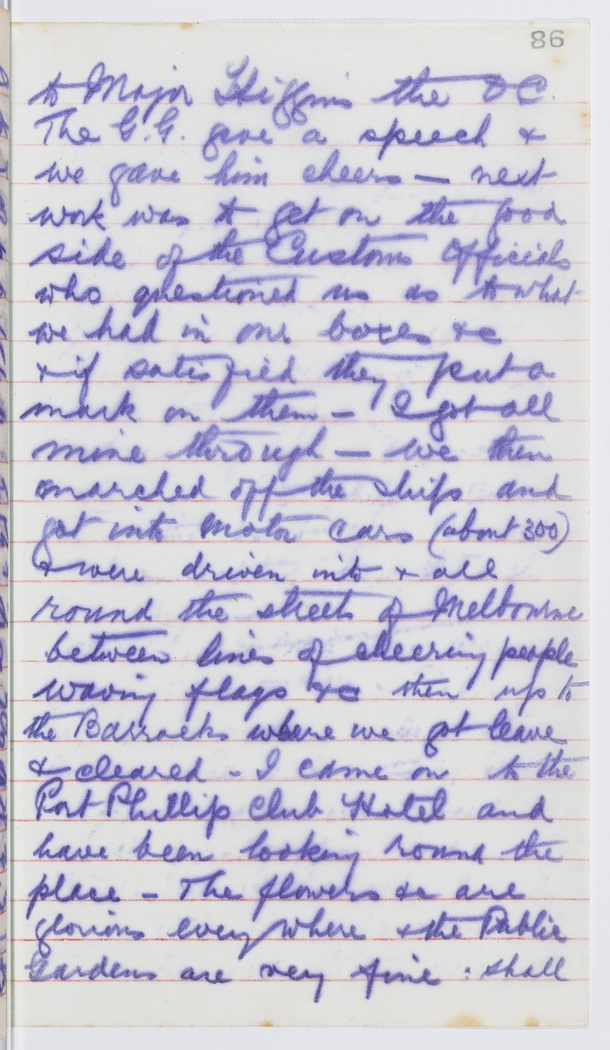 86
to Major Higgins the OC.
The G.G. gave a speech &
we gave him cheers — next
work was to get on the good
side of the Customs Officials
who questioned us as to what
we had in our boxes &c
& if satisfied they put a
mark on them — I got all
mine through — we then
marched off the ships and
got into motor cars (about 300)
& were driven into & all
round the streets of Melbourne
between lines of cheering people
waving flags &c then up to
the Barracks where we got leave
& cleared - I came on to the
Port Phillip Club Hotel and
have been looking round the
place — The flowers &c are
glorious everywhere & the Public
Gardens are very fine : shall